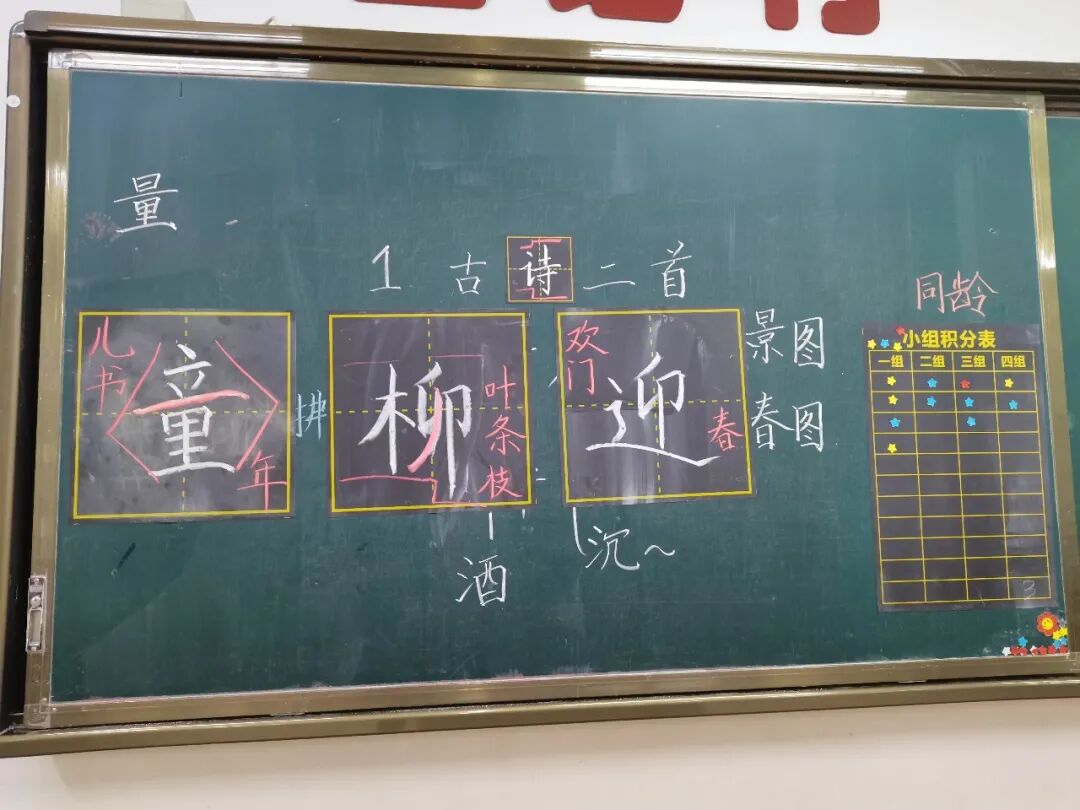 量
1 古诗二首
同龄
儿书 童 年
拂
柳 叶条枝
欢门 迎 春
景图
春图
酒
沉～
小组积分表
一组 二组 三组 四组
3